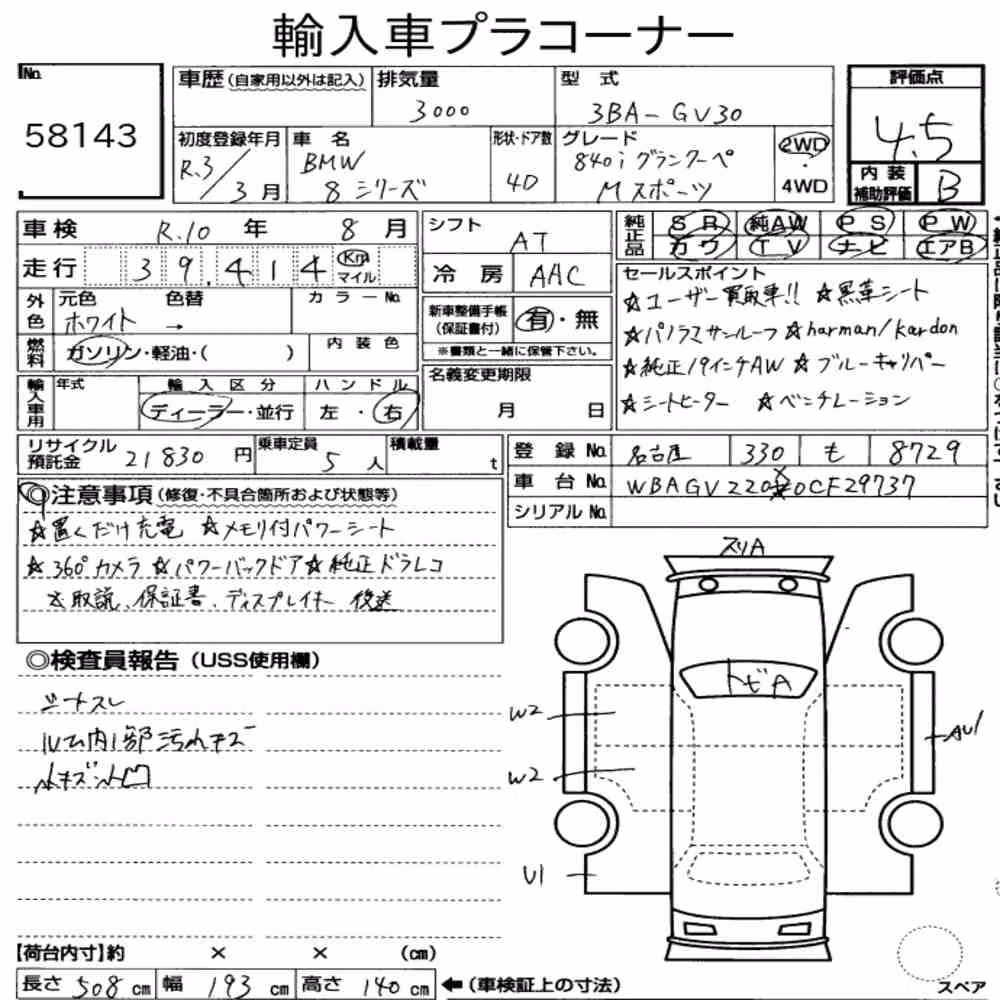 輸入車プラコーナー
No. 58143
車歴(自家用以外は記入)
排気量 3000
型式 3BA-GV30
評価点 4.5
内装補助評価 B
初度登録年月 R.3/3月
車名 BMW 8シリーズ
形状・ドア数 4D
グレード 840i グランクーペ Mスポーツ
2WD・4WD
車検 R.10年 8月
走行 39,414 Km マイル
シフト AT
冷房 AAC
純正品 SR 純AW PS PW
カワ TV ナビ エアB
外色 元色 ホワイト 色替 → カラーNo.
燃料 ガソリン・軽油・( )
内装色
新車整備手帳(保証書付) 有・無
※書類と一緒に保管下さい。
セールスポイント
☆ユーザー買取車!! ☆黒革シート
☆パノラマサンルーフ ☆harman/kardon
☆純正19インチAW ☆ブルーキャリパー
☆シートヒーター ☆ベンチレーション
輸入車用 年式
輸入区分 ディーラー・並行
ハンドル 左・右
名義変更期限 月 日
リサイクル預託金 21830円
乗車定員 5人
積載量 t
登録No. 名古屋 330 も 8729
車台No. WBAGV220
0CF29737
シリアルNo.
◎注意事項(修復・不具合箇所および状態等)
☆置くだけ充電 ☆メモリ付パワーシート
☆360°カメラ ☆パワーバックドア ☆純正ドラレコ
☆取説、保証書、ディスプレイキー 後送
◎検査員報告(USS使用欄)
シートスレ
ルーム内1部汚れキズ
小キズ小凹
スリA
トビA
W2
W2
U1
AU1
【荷台内寸】約 × × (cm)
長さ 508cm 幅 193cm 高さ 140cm ←(車検証上の寸法)
スペア